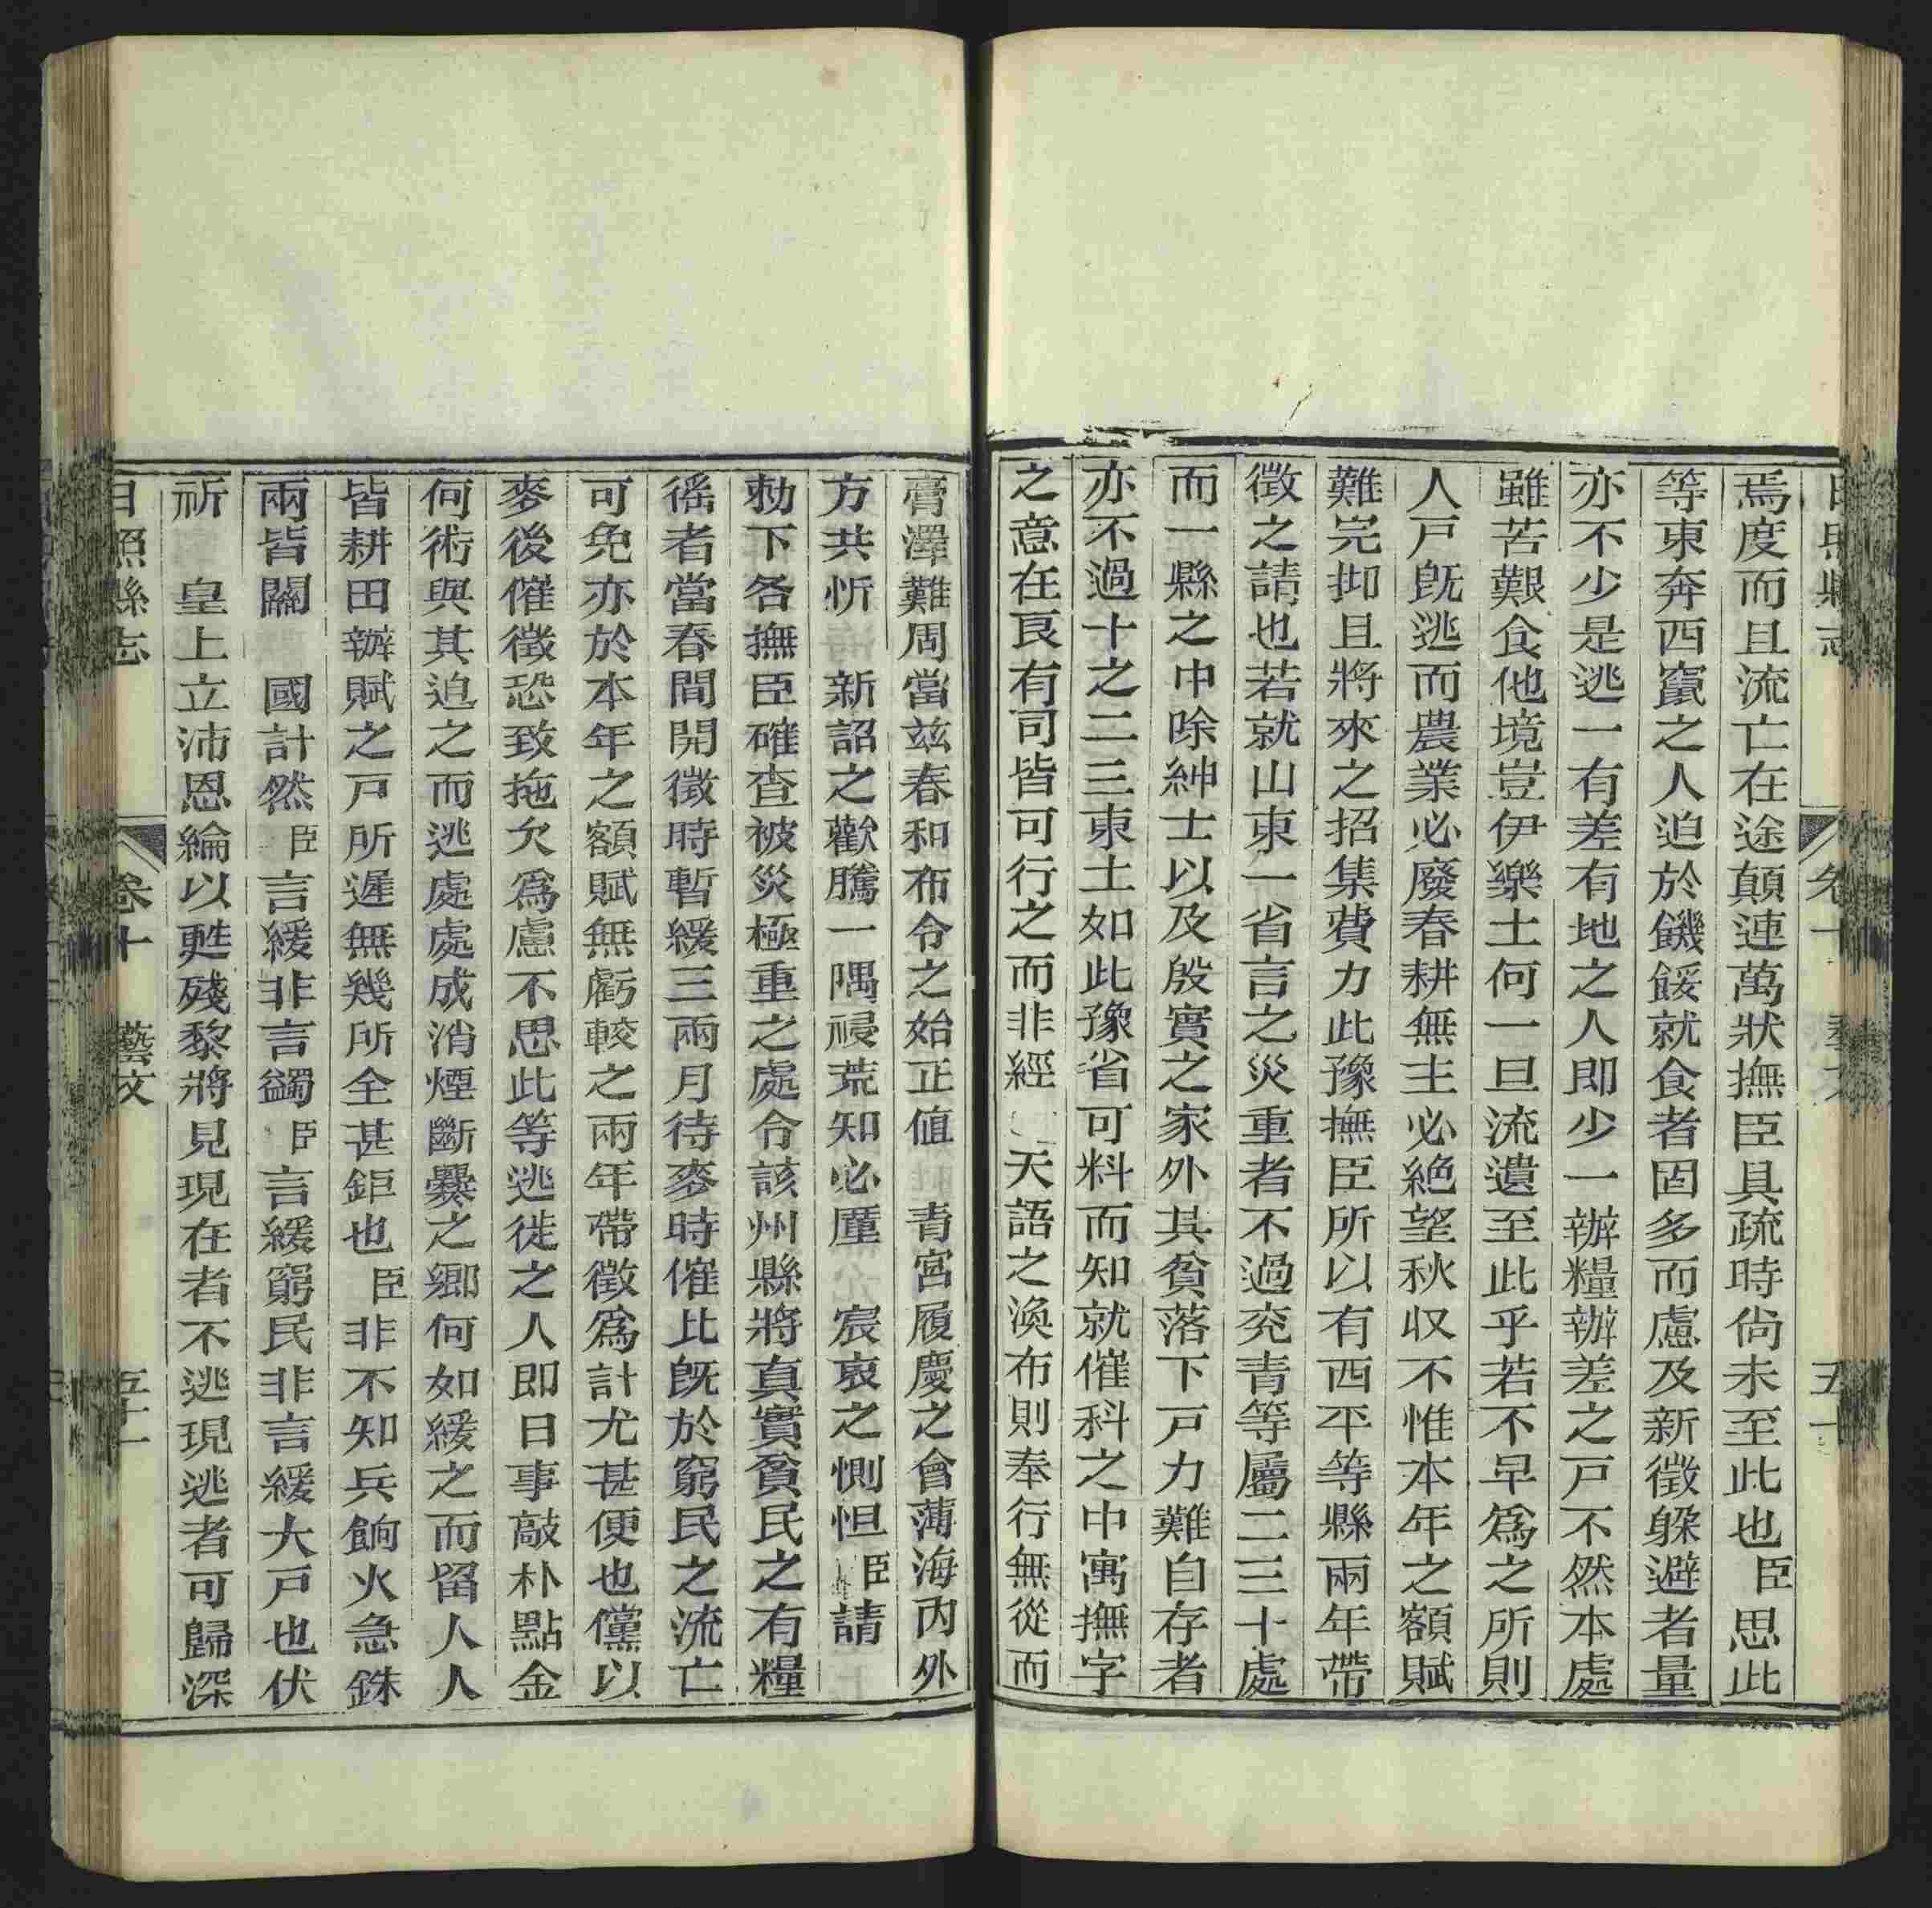 日照縣志 卷十 藝文 五十
焉度而且流亡在途顛連萬狀撫臣具疏時尙未至此也臣思此
等東奔西竄之人迫於饑餒就食者固多而慮及新徵躱避者量
亦不少是逃一有差有地之人即少一辦糧辦差之戸不然本處
雖苦艱食他境豈伊樂土何一旦流遺至此乎若不早爲之所則
人戸旣逃而農業必廢春耕無主必絶望秋収不惟本年之額賦
難完抑且將來之招集費力此豫撫臣所以有西平等縣兩年帶
徵之請也若就山東一省言之災重者不過兖青等屬二三十處
而一縣之中除紳士以及殷實之家外其貧落下戸力難自存者
亦不過十之二三東土如此豫省可料而知就催科之中寓撫字
之意在良有司皆可行之而非經 天語之渙布則奉行無從而
膏澤難周當兹春和布令之始正值 青宮履慶之會薄海內外
方共忻 新詔之歡騰一隅祲荒知必厪 宸衷之惻怛臣請
勅下各撫臣確查被災極重之處令該州縣將真實貧民之有糧
徭者當春間開徵時暫緩三兩月待麥時催比旣於窮民之流亡
可免亦於本年之額賦無虧較之兩年帶徵爲計尤甚便也儻以
麥後催徵恐致拖欠爲慮不思此等逃徙之人即日事敲朴點金
何術與其迫之而逃處處成消煙斷爨之鄉何如緩之而留人人
皆耕田辦賦之戸所遲無幾所全甚鉅也臣非不知兵餉火急銖
兩皆關 國計然臣言緩非言蠲臣言緩窮民非言緩大戸也伏
祈 皇上立沛恩綸以甦殘黎將見現在者不逃現逃者可歸深
日照縣志 卷十 藝文 五十一